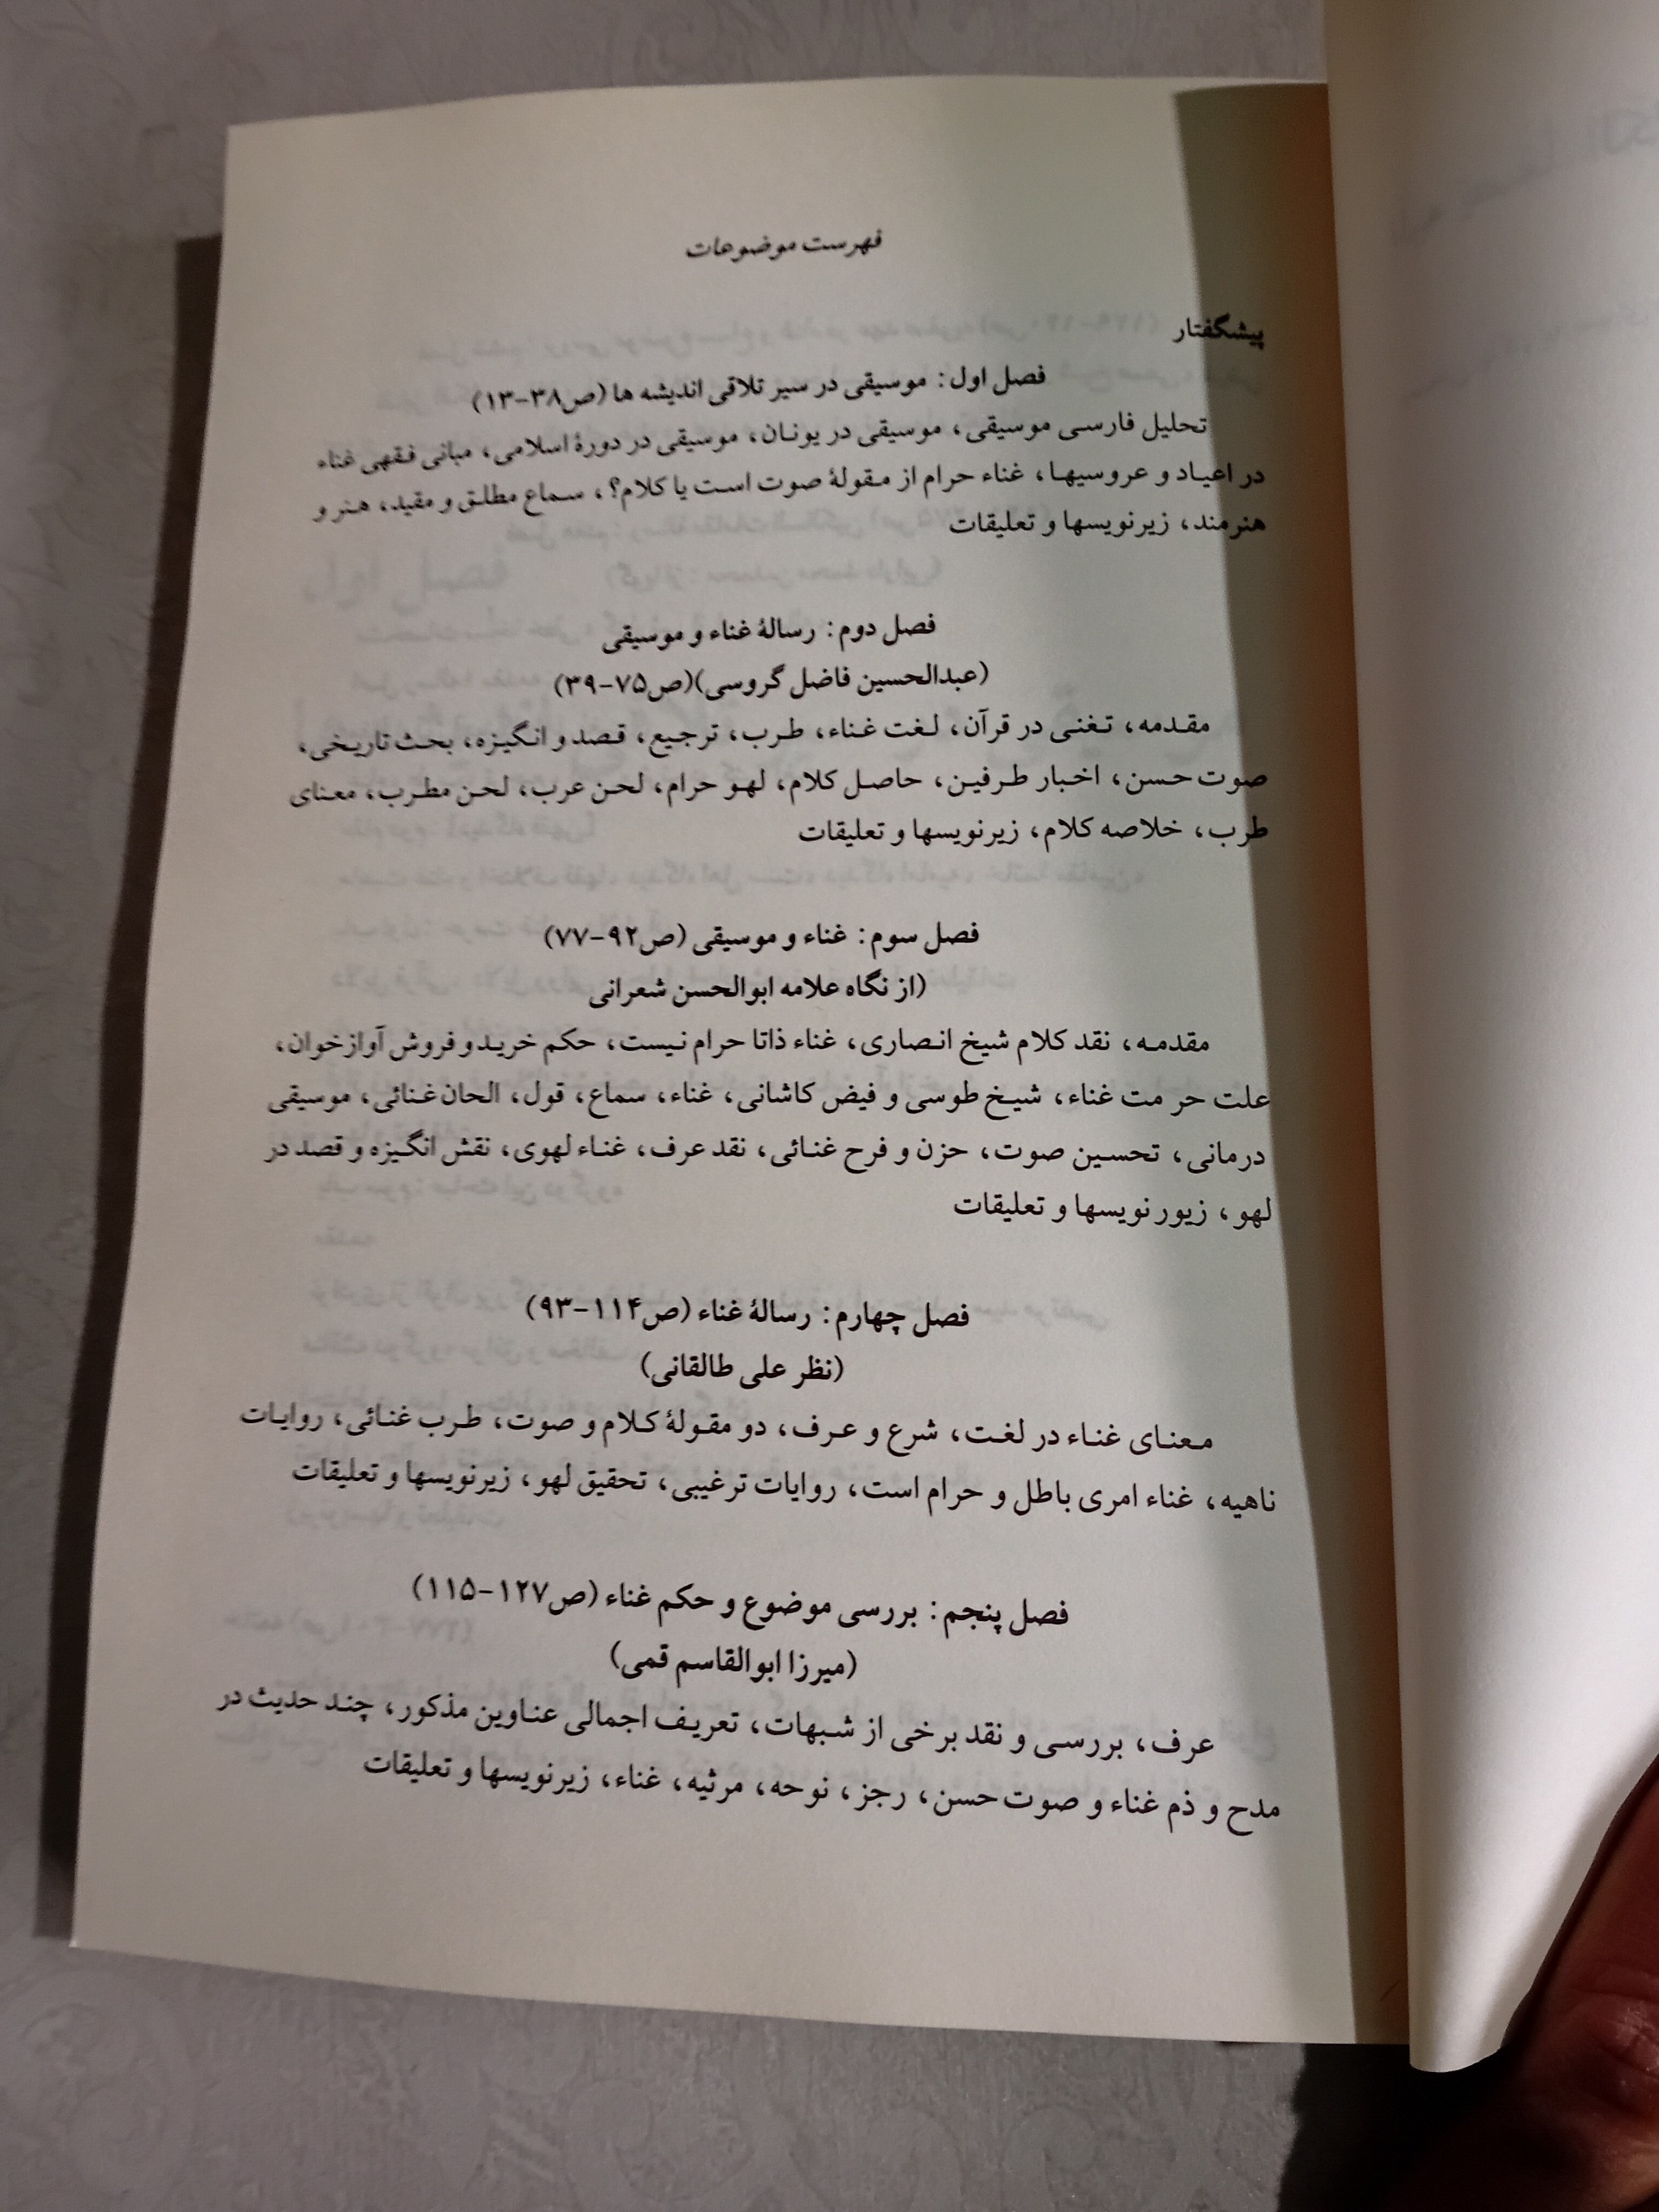 فهرست موضوعات
پیشگفتار
فصل اول: موسیقی در سیر تلاقی اندیشه ها (ص۳۸-۱۳)
تحلیل فارسی موسیقی، موسیقی در یونان، موسیقی در دورهٔ اسلامی، مبانی فقهی غناء
در اعیاد و عروسیها، غناء حرام از مقولهٔ صوت است یا کلام؟، سماع مطلق و مقید، هنر و
هنرمند، زیرنویسها و تعلیقات
فصل دوم: رسالهٔ غناء و موسیقی
(عبدالحسین فاضل گروسی)(ص۷۵-۳۹)
مقدمه، تغنی در قرآن، لغت غناء، طرب، ترجیع، قصد و انگیزه، بحث تاریخی،
صوت حسن، اخبار طرفین، حاصل کلام، لهو حرام، لحن عرب، لحن مطرب، معنای
طرب، خلاصه کلام، زیرنویسها و تعلیقات
فصل سوم: غناء و موسیقی (ص۹۲-۷۷)
(از نگاه علامه ابوالحسن شعرانی
مقدمه، نقد کلام شیخ انصاری، غناء ذاتا حرام نیست، حکم خرید و فروش آوازخوان،
علت حر مت غناء، شیخ طوسی و فیض کاشانی، غناء، سماع، قول، الحان غنائی، موسیقی
درمانی، تحسین صوت، حزن و فرح غنائی، نقد عرف، غناء لهوی، نقش انگیزه و قصد در
لهو، زیور نویسها و تعلیقات
فصل چهارم: رسالهٔ غناء (ص۱۱۴-۹۳)
(نظر علی طالقانی)
معنای غناء در لغت، شرع و عرف، دو مقولهٔ کلام و صوت، طرب غنائی، روایات
ناهیه، غناء امری باطل و حرام است، روایات ترغیبی، تحقیق لهو، زیرنویسها و تعلیقات
فصل پنجم: بررسی موضوع و حکم غناء (ص۱۲۷-۱۱۵)
(میرزا ابوالقاسم قمی)
عرف، بررسی و نقد برخی از شبهات، تعریف اجمالی عناوین مذکور، چند حدیث در
مدح و ذم غناء و صوت حسن، رجز، نوحه، مرثیه، غناء، زیرنویسها و تعلیقات